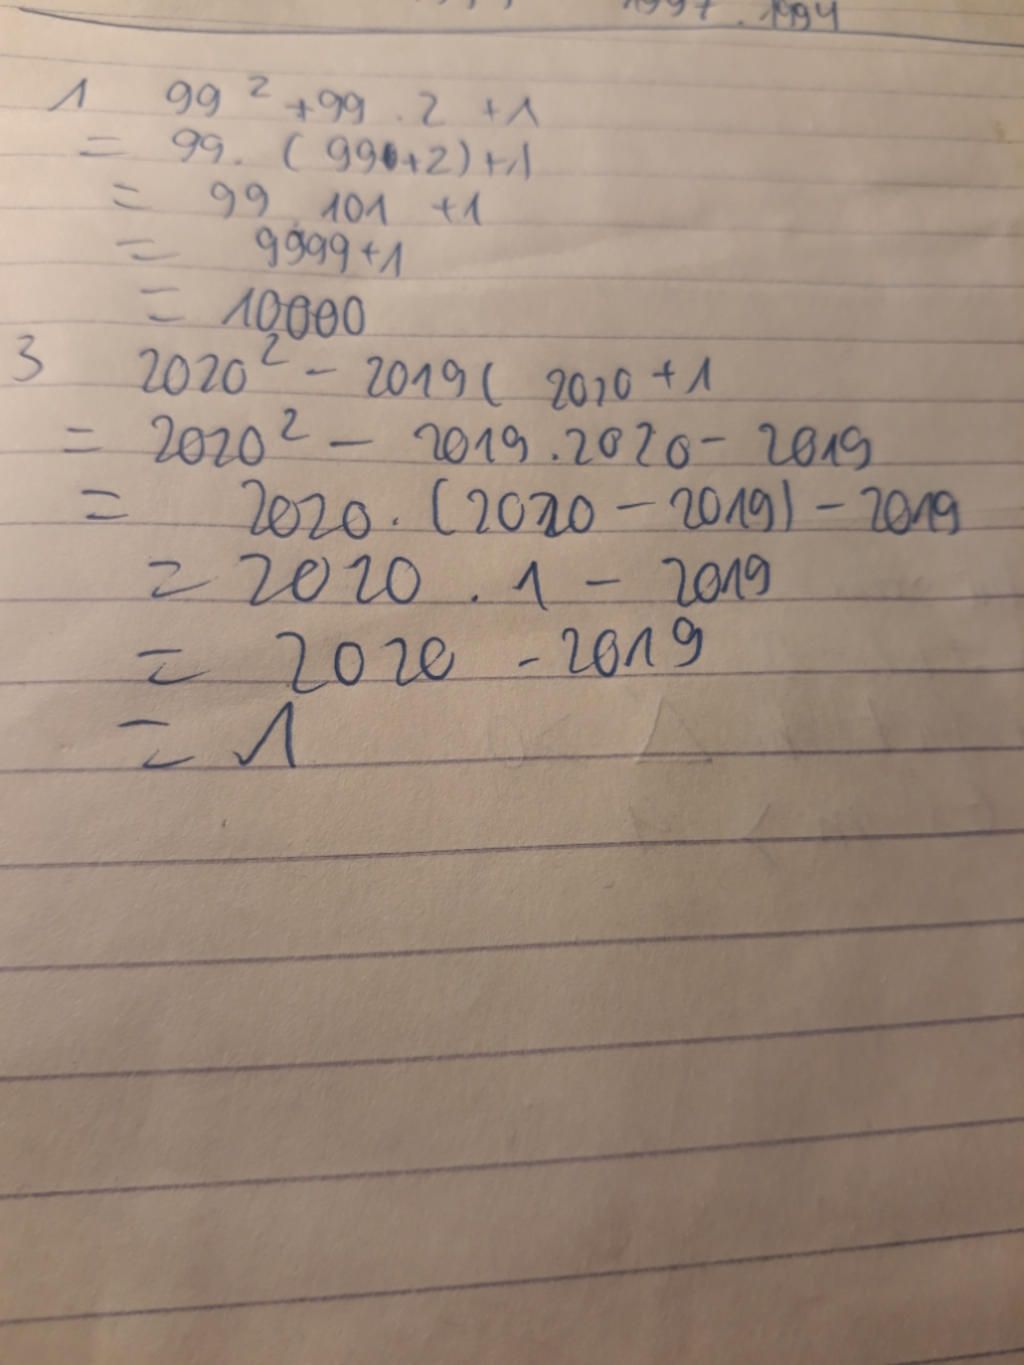 1997 . 1994
1 99² + 99 . 2 + 1
= 99 . ( 99 + 2) + 1
= 99 . 101 + 1
= 9999 + 1
= 10000
3 2020² - 2019 ( 2020 + 1
= 2020² - 2019 . 2020 - 2019
= 2020 . (2020 - 2019) - 2019
= 2020 . 1 - 2019
= 2020 - 2019
= 1